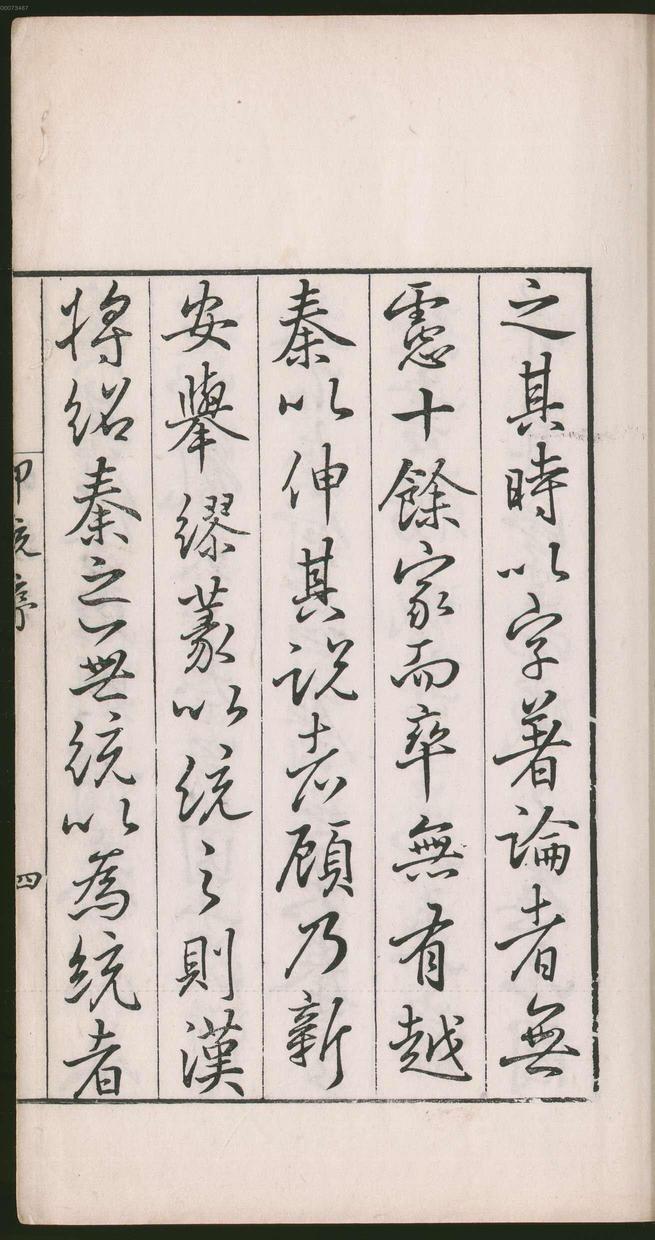 之其時以字著論者無
慮十餘家而率無有越
秦以伸其説者顧乃新
安舉繆篆以統之則漢
將紹秦之一世統以為統者
印統序
四
00073467